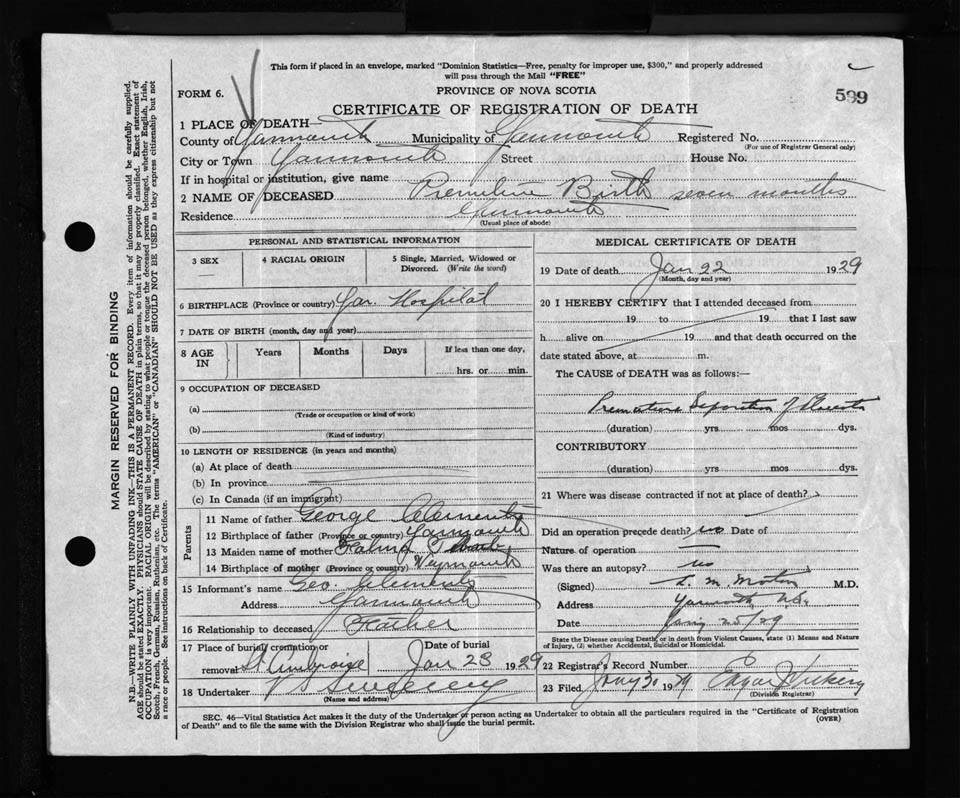 This form if placed in an envelope, marked "Dominion Statistics—Free, penalty for improper use, $300," and properly addressed
will pass through the Mail "FREE"
FORM 6.
PROVINCE OF NOVA SCOTIA
599
CERTIFICATE OF REGISTRATION OF DEATH
1 PLACE OF DEATH—
County of Yarmouth Municipality of Yarmouth Registered No.
(For use of Registrar General only)
City or Town Yarmouth Street House No.
If in hospital or institution, give name
2 NAME OF DECEASED Birth seven months
Residence Yarmouth
(Usual place of abode)
PERSONAL AND STATISTICAL INFORMATION
3 SEX 4 RACIAL ORIGIN 5 Single, Married, Widowed or
Divorced. (Write the word)
—
6 BIRTHPLACE (Province or country) Yar. Hospital
7 DATE OF BIRTH (month, day and year)
8 AGE IN Years Months Days If less than one day,
hrs. or min.
9 OCCUPATION OF DECEASED
(a)
(Trade or occupation or kind of work)
(b)
(Kind of industry)
10 LENGTH OF RESIDENCE (in years and months)
(a) At place of death
(b) In province
(c) In Canada (if an immigrant)
Parents
11 Name of father George Clements
12 Birthplace of father (Province or country) Yarmouth
13 Maiden name of mother
14 Birthplace of mother (Province or country) Weymouth
15 Informant's name Geo. Clements
Address Yarmouth
16 Relationship to deceased Father
17 Place of burial, cremation or Date of burial
removal St Ambroise Jan 23 1929
18 Undertaker Sweeney
(Name and address)
MEDICAL CERTIFICATE OF DEATH
19 Date of death Jan 22 1929
(Month, day and year)
20 I HEREBY CERTIFY that I attended deceased from
19 to 19 that I last saw
h alive on 19 and that death occurred on the
date stated above, at m.
The CAUSE of DEATH was as follows:—
Premature Separation of Placenta
(duration) yrs mos dys.
CONTRIBUTORY
(duration) yrs mos dys.
21 Where was disease contracted if not at place of death?
Did an operation precede death? no Date of
Nature of operation —
Was there an autopsy? no
(Signed) L. M. Morton M.D.
Address Yarmouth, N.S.
Date 25/29
State the Disease causing Death, or in death from Violent Causes, state (1) Means and Nature
of Injury, (2) whether Accidental, Suicidal or Homicidal.
22 Registrar's Record Number
23 Filed 30 1929 Edgar J Vickery
(Division Registrar)
SEC. 46—Vital Statistics Act makes it the duty of the Undertaker or person acting as Undertaker to obtain all the particulars required in the "Certificate of Registration
of Death" and to file the same with the Division Registrar who shall issue the burial permit.
(OVER)
MARGIN RESERVED FOR BINDING
N.B.—WRITE PLAINLY WITH UNFADING INK—THIS IS A PERMANENT RECORD. Every item of information should be carefully supplied.
AGE should be stated EXACTLY. PHYSICIANS should STATE CAUSE OF DEATH in plain terms, so that it may be properly classified. Exact statement of
OCCUPATION is very important. RACIAL ORIGIN will be described by stating to what people or tongue the deceased person belonged, whether English, Irish,
Scotch, French, German, Russian, Ruthenian, etc. The terms "AMERICAN" or "CANADIAN" SHOULD NOT BE USED as they express citizenship but not
a race or people. See instructions on back of Certificate.